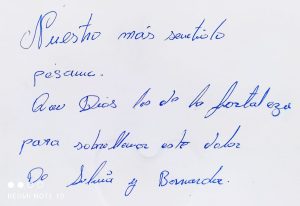 Nuestro más sentido
pésame.
Que Dios les de la fortaleza
para sobrellevar este dolor
De Silvia y Bernarda.
REDMI NOTE 10